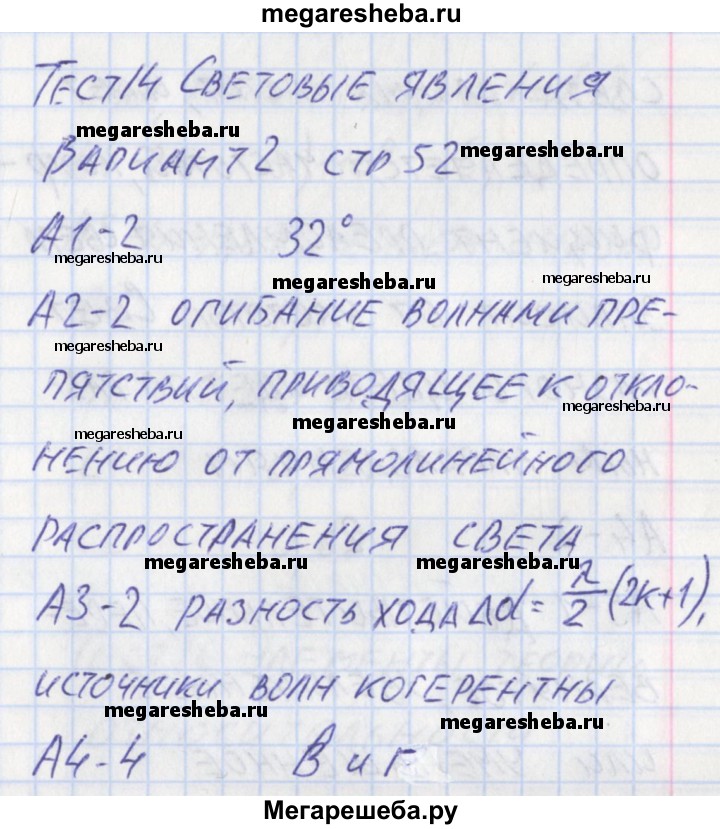 megaresheba.ru
ТЕСТ14 СВЕТОВЫЕ ЯВЛЕНИЯ
megaresheba.ru
ВАРИАНТ2 СТР 52 megaresheba.ru
А1-2 32°
megaresheba.ru megaresheba.ru megaresheba.ru
А2-2 ОГИБАНИЕ ВОЛНАМИ ПРЕ-
megaresheba.ru
ПЯТСТВИЙ, ПРИВОДЯЩЕЕ К ОТКЛО-
megaresheba.ru megaresheba.ru megaresheba.ru
НЕНИЮ ОТ ПРЯМОЛИНЕЙНОГО
РАСПРОСТРАНЕНИЯ СВЕТА
megaresheba.ru megaresheba.ru
А3-2 РАЗНОСТЬ ХОДА Δd = λ/2 (2k+1),
ИСТОЧНИКИ ВОЛН КОГЕРЕНТНЫ
megaresheba.ru megaresheba.ru
А4-4 В и Г
Мегарешеба.ру